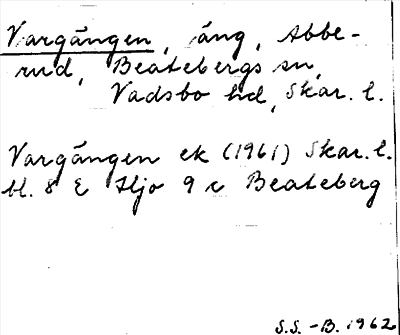 Vargången, äng, Abbe-
rud, Beatebergs sn,
Vadsbo hd, Skar. l.
Vargången ek (1961) Skar. l.
bl. 8 E Hjo 9 c Beateberg
S.S. -B. 1962